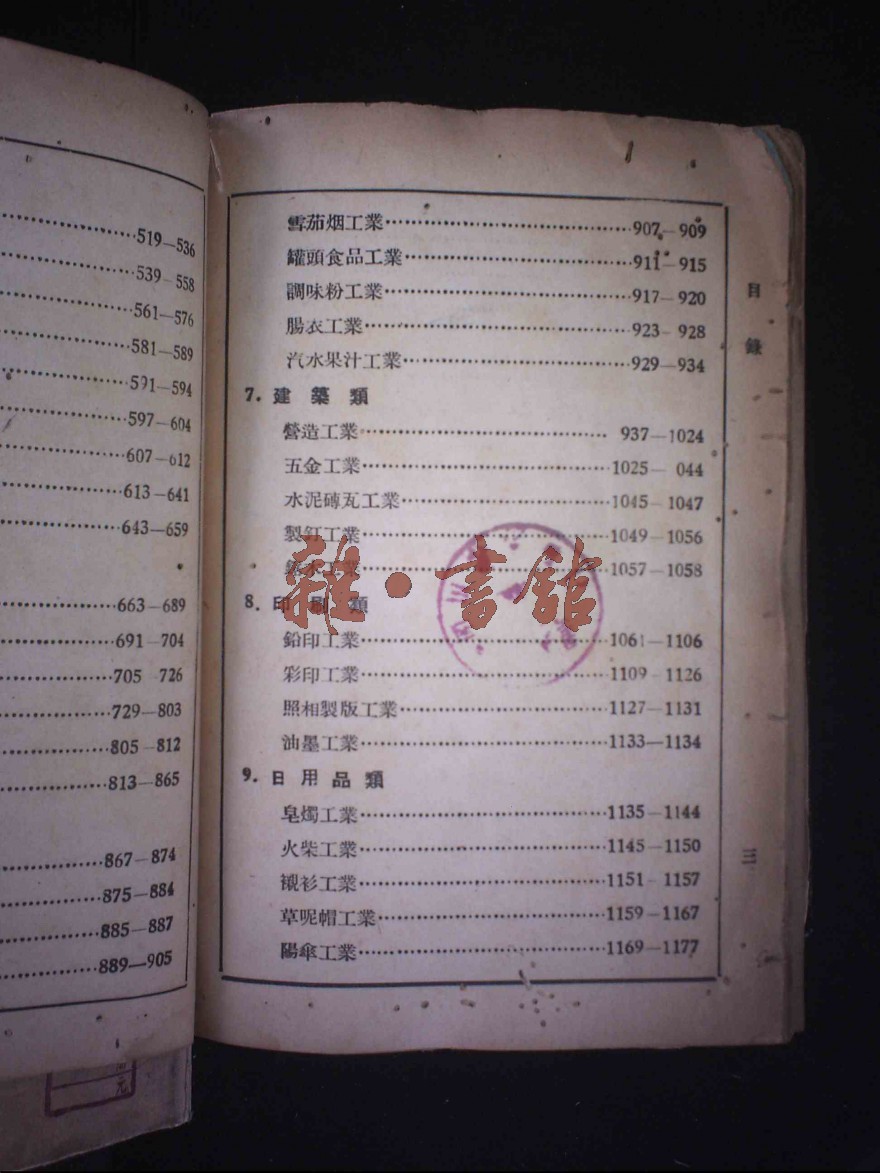 519—536
539—558
561—576
581—589
591—594
597—604
607—612
613—641
643—659
663—689
691—704
705 726
729—803
805—812
813—865
867—874
875—884
885—887
889—905
雪茄烟工業 907—909
罐頭食品工業 911—915
調味粉工業 917—920
腸衣工業 923—928
汽水果汁工業 929—934
7. 建築類
營造工業 937—1024
五金工業 1025— 044
水泥磚瓦工業 1045—1047
製釘工業 1049—1056
鋸木工業 1057—1058
8. 印刷類
鉛印工業 1061—1106
彩印工業 1109—1126
照相製版工業 1127—1131
油墨工業 1133—1134
9. 日用品類
皂燭工業 1135—1144
火柴工業 1145—1150
襯衫工業 1151—1157
草呢帽工業 1159—1167
陽傘工業 1169—1177
目錄
三
雜·書館